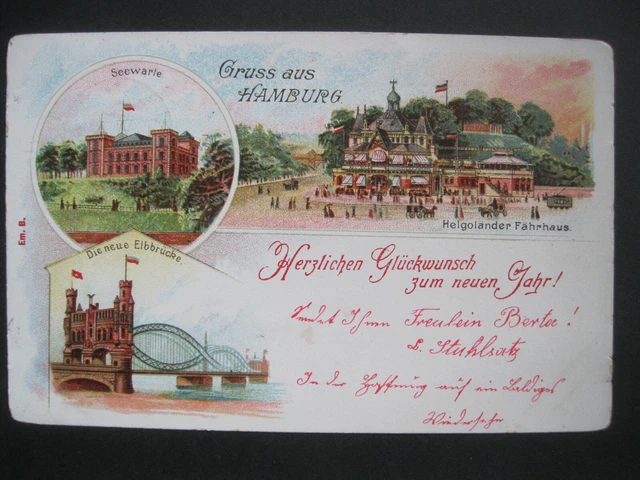 Seewarte.
Gruss aus
HAMBURG.
Helgoländer Fährhaus.
Em. B.
Die neue Elbbrücke.
Herzlichen Glückwunsch
zum neuen Jahr!
Sendet Ihnen Freulein Berta!
L. Stuhlsatz
In der Hoffnung auf ein Baldiges
Wiedersehn